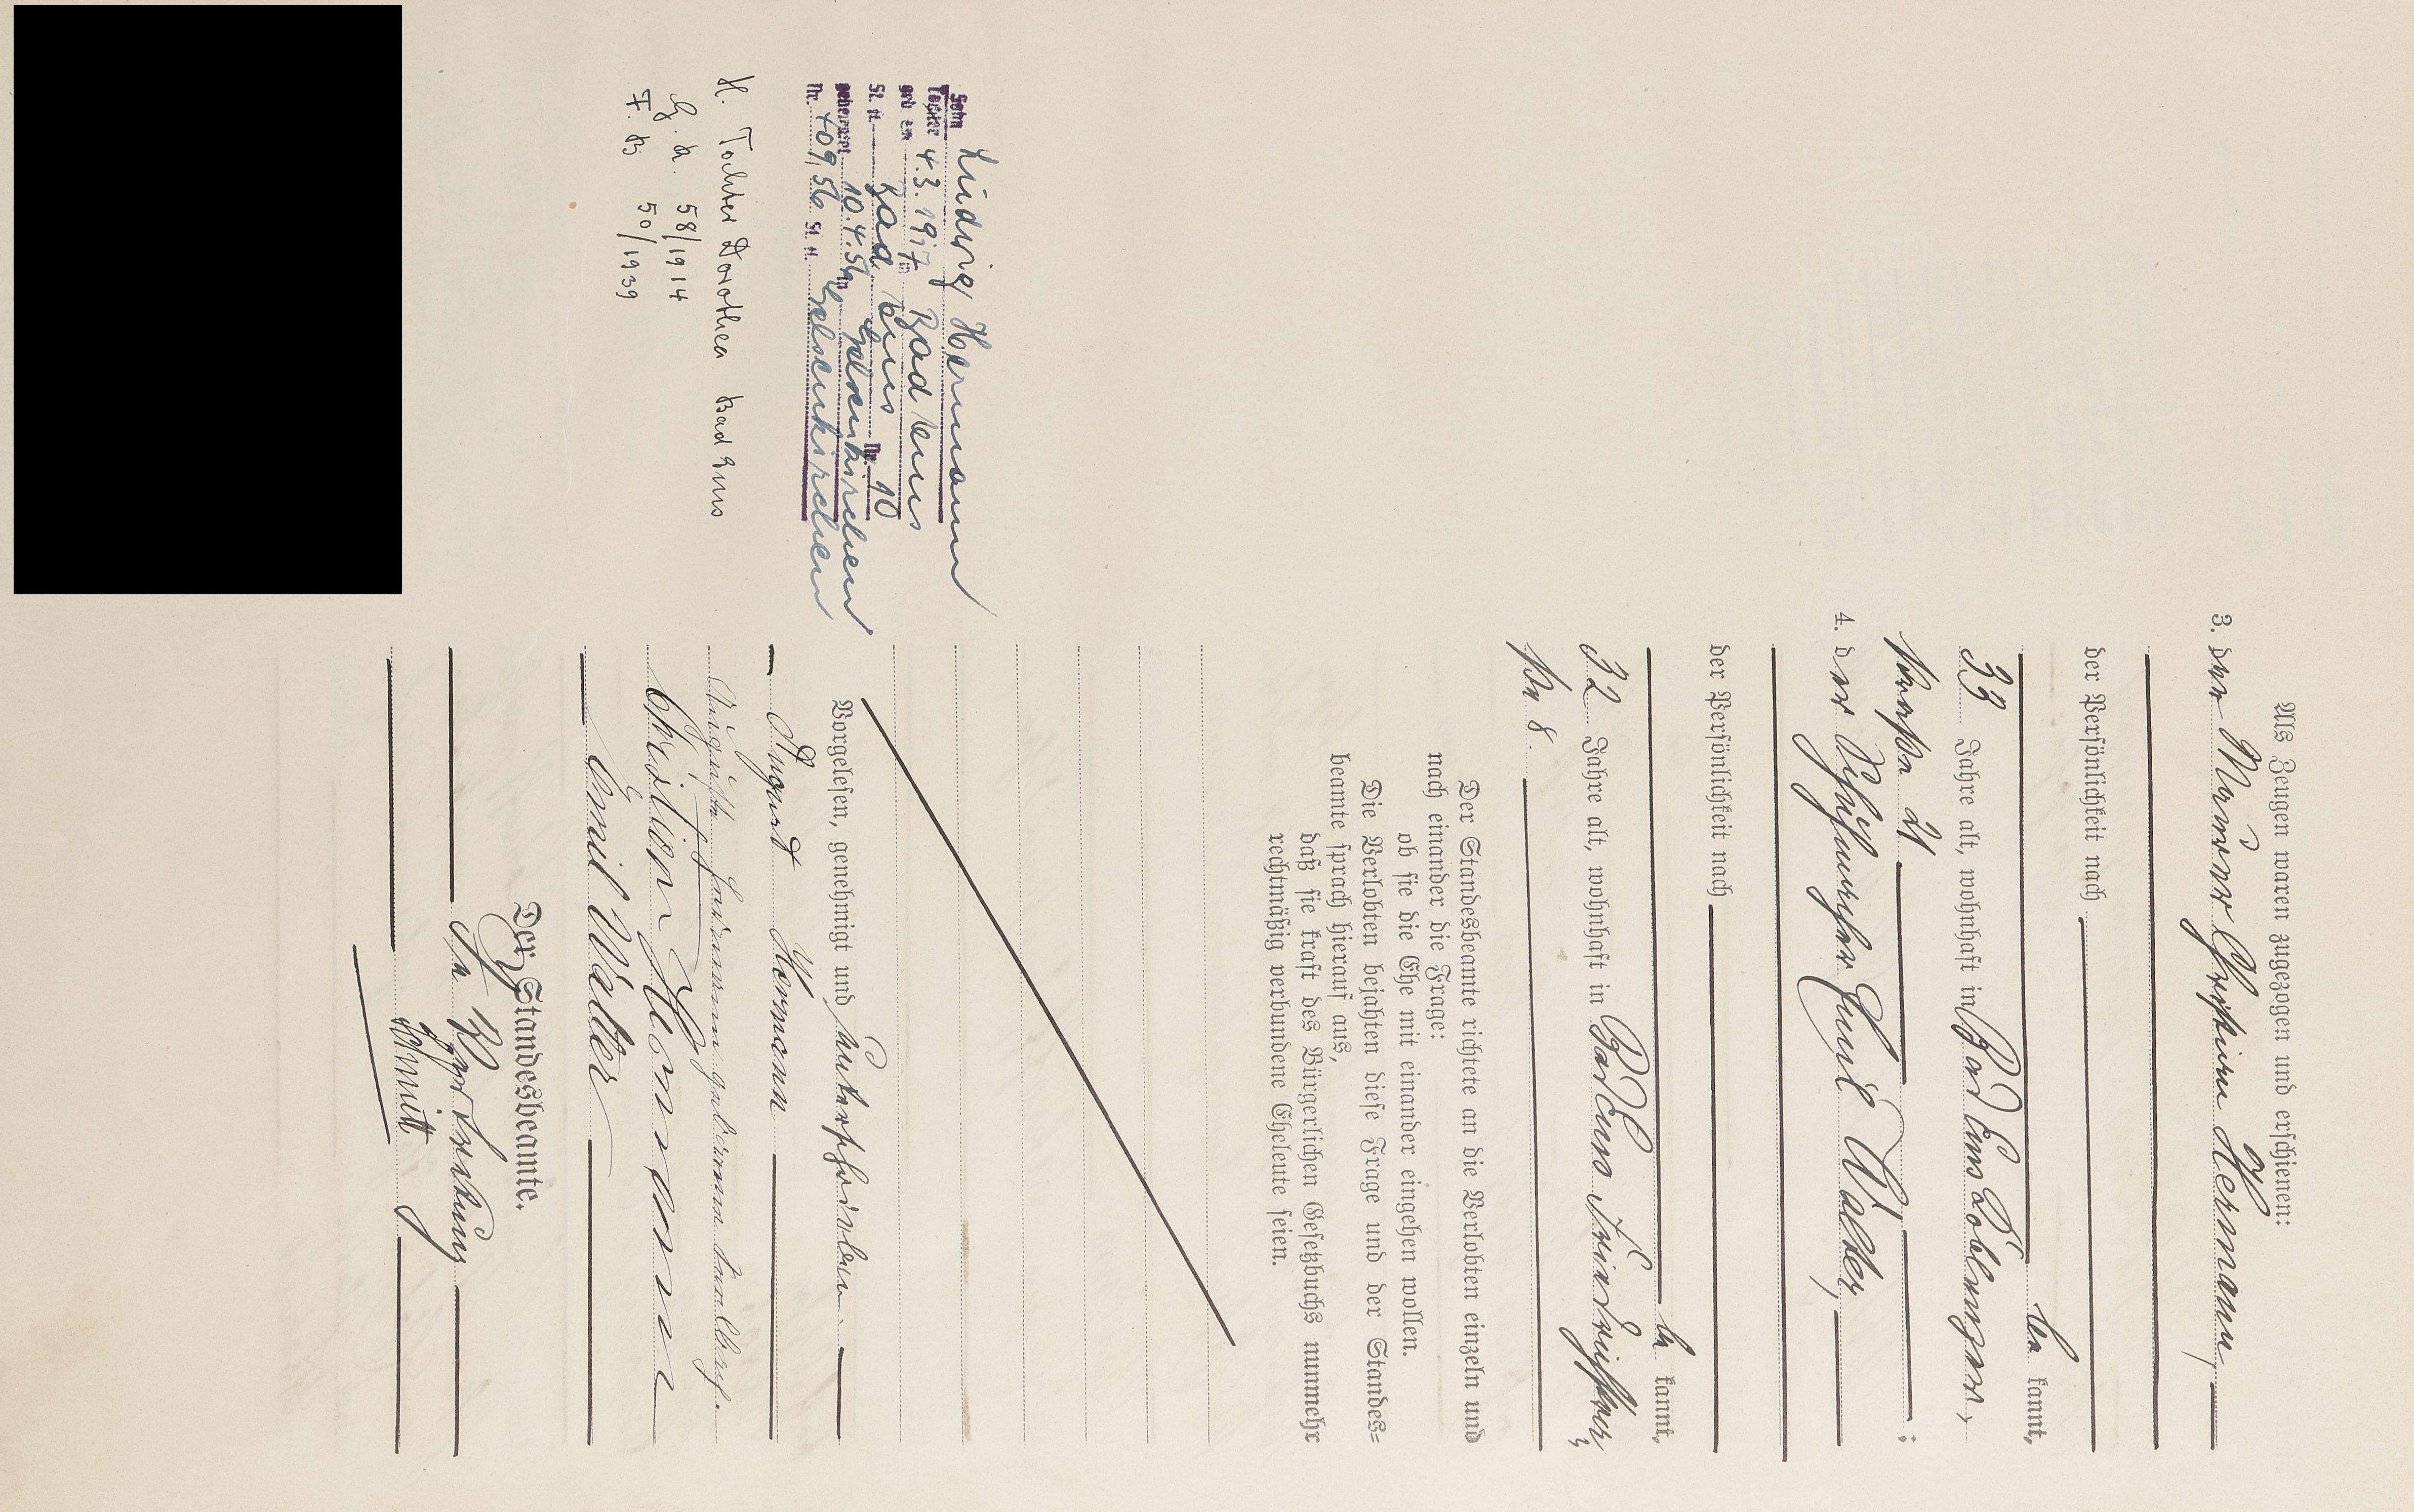 Als Zeugen waren zugezogen und erschienen:
3. der Maurer Christian Hermann,
der Persönlichkeit nach
be kannt,
33 Jahre alt, wohnhaft in Bad Ems Coblenzer-
straße 21 ;
4. der Schuhmacher Emil Walter,
der Persönlichkeit nach
be kannt,
32 Jahre alt, wohnhaft in Bad Ems
No 8.
Der Standesbeamte richtete an die Verlobten einzeln und
nach einander die Frage:
ob sie die Ehe mit einander eingehen wollen.
Die Verlobten bejahten diese Frage und der Standes=
beamte sprach hierauf aus,
daß sie kraft des Bürgerlichen Gesetzbuchs nunmehr
rechtmäßig verbundene Eheleute seien.
Vorgelesen, genehmigt und unterschrieben.
August Hermann
Auguste Hermann geborene
Christian Hermann
Emil Walter
Der Standesbeamte.
In Vertretung
Schmitt
Sohn Ludwig Hermann
Tochter
geb. am 4.3.1917 in Bad Ems
St. A. Bad Ems Nr. 10
geheiratet 10.4.56 in Gelsenkirchen
Nr. 409/56 St. A. Gelsenkirchen
H. Tochter Dorothea Bad Ems
G. B. 58/1914
F. B. 50/1939